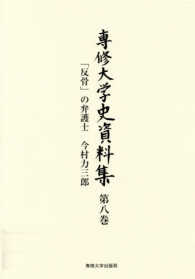 専修大学史資料集 第八巻
「反骨」の弁護士 今村力三郎
専修大学出版局